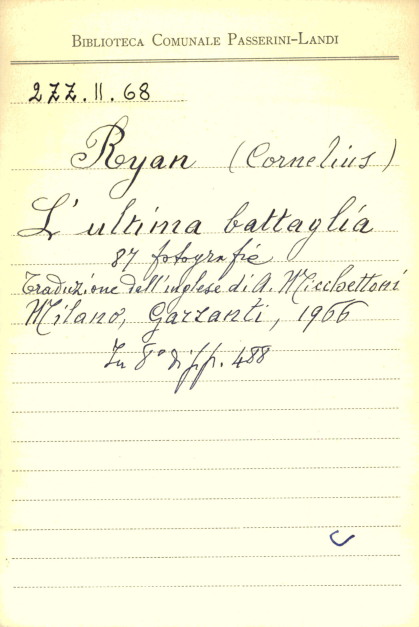 BIBLIOTECA COMUNALE PASSERINI-LANDI
2ZZ.II.68
Ryan (Cornelius)
L'ultima battaglia
87 fotografie
Traduzione dell'inglese di A. Micchettoni
Milano, Garzanti, 1966
In 8° di pp. 488
C